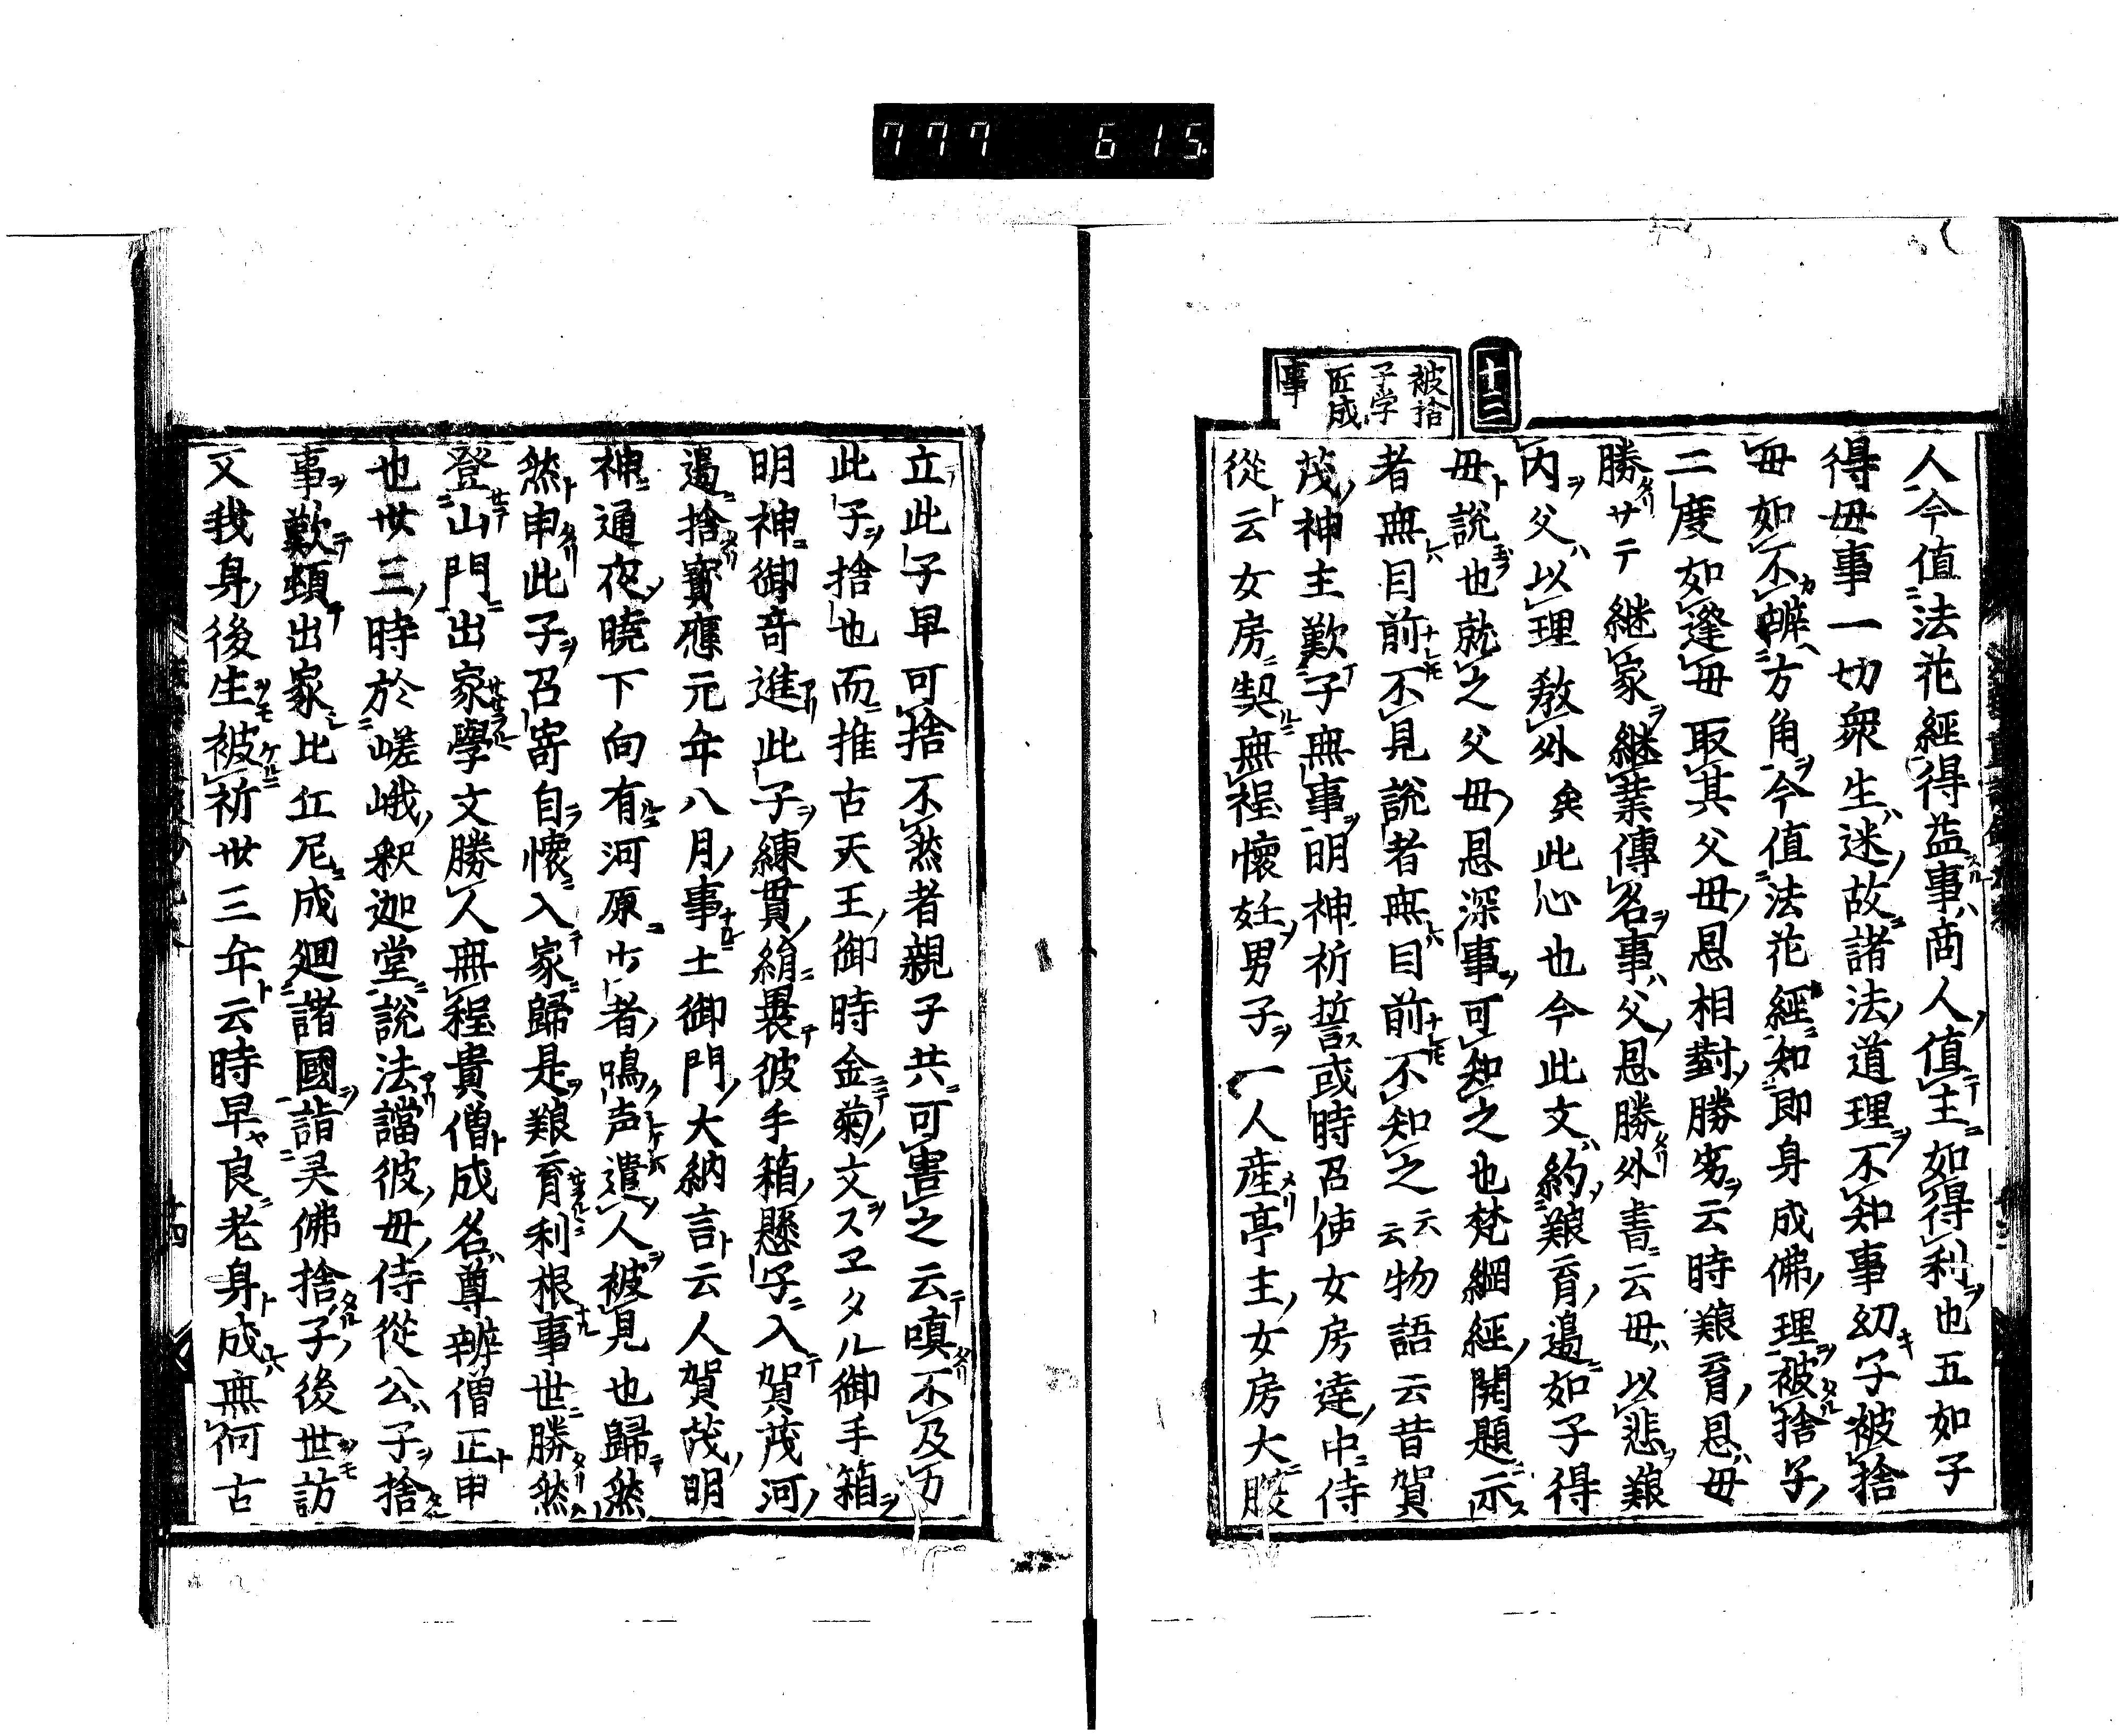 777 615
十二
被捨
子学
匠成
事
人今值法花經得益事商人値主如得利也五如子
得毋事一切衆生迷故諸法道理不知事幼子被捨
毋如不辨方角今值法花經知即身成佛理被捨子
二度如逢毋取其父毋恩相對勝劣云時艱育恩毋
勝サテ継家継業傳名事父恩勝外書云毋以悲艱
内父以理教外矣此心也今此文約艱育邊如子得
毋說也就之父毋恩深事可知之也梵網經開題示
者無目前不見說者無目前不知之云云物語云昔賀
茂神主歎子無事明神祈誓或時召使女房達中侍
從云女房契無程懷妊男子一人産亭主女房大腹
立此子早可捨不然者親子共可害之云嗔不及力
此子捨也而推古天王御時金菊文スヱタル御手箱
明神御竒進此子練貫絹裹彼手箱懸子入賀茂河
邊捨寳應元年八月事土御門大納言云人賀茂明
神通夜曉下向有河原者鳴声遣人被見也歸然
然申此子召寄自懷入家歸是艱育利根事世勝然
登山門出家學文勝人無程貴僧成名尊辨僧正申
也丗三時於嵯峨釈迦堂說法讅彼毋侍從公子捨
事歎頓出家比丘尼成廻諸國詣㚑佛捨子後世訪
又我身後生被祈丗三年云時早良老身成無何古